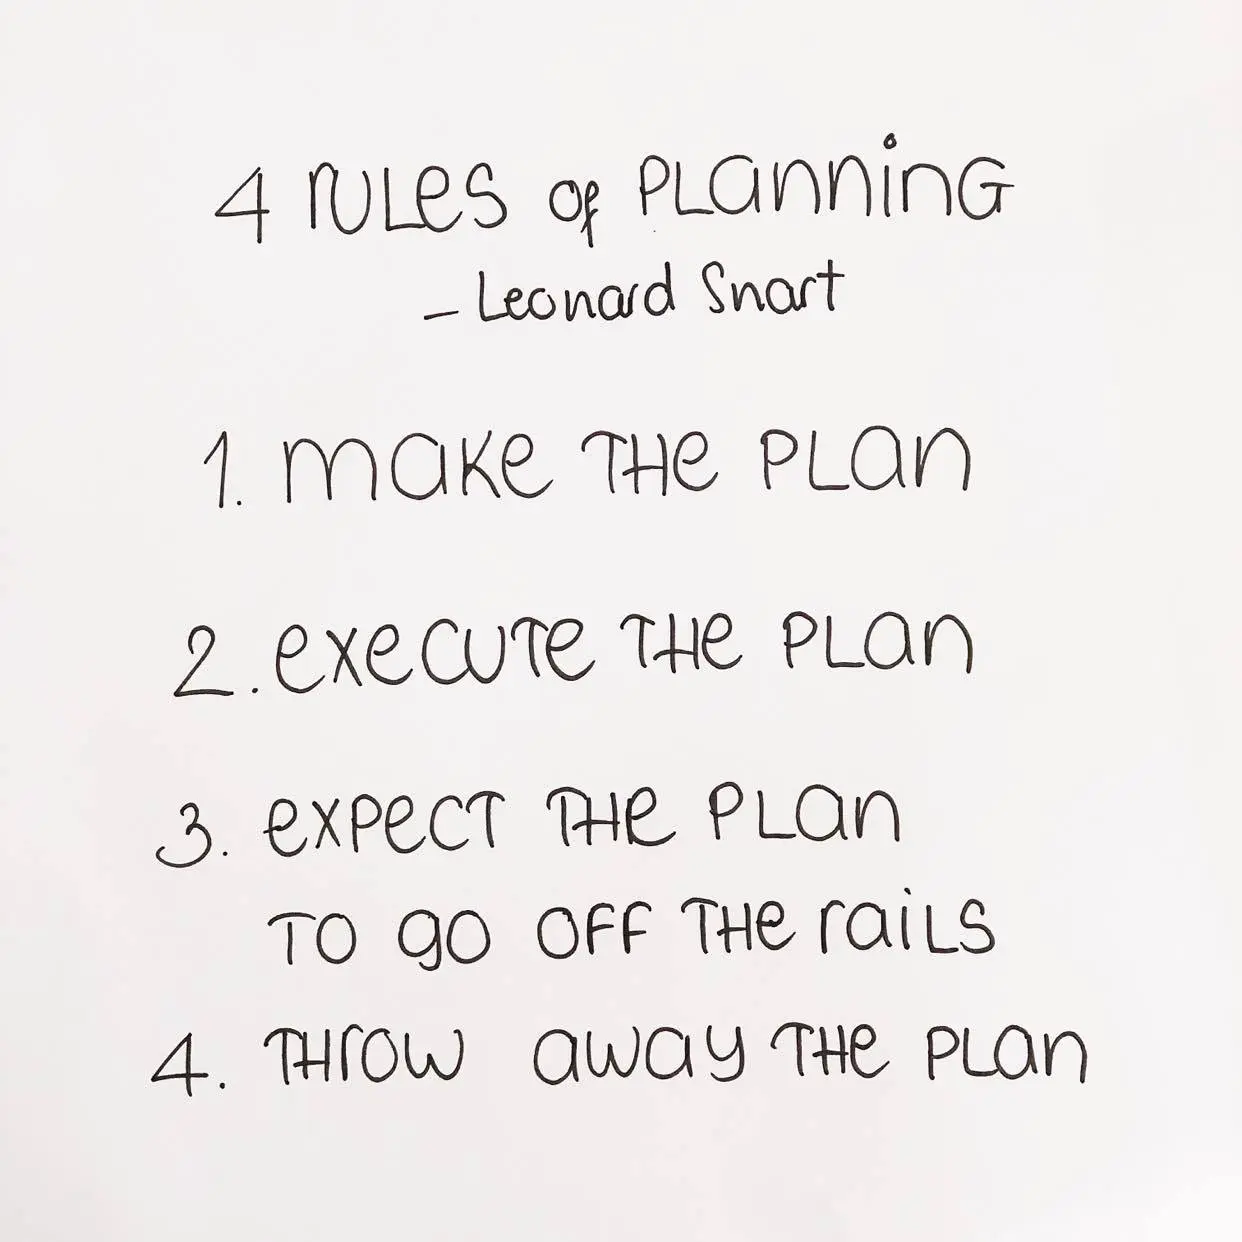 4 rules of planning
- Leonard Snart
1. make the plan
2. execute the plan
3. expect the plan
to go off the rails
4. throw away the plan